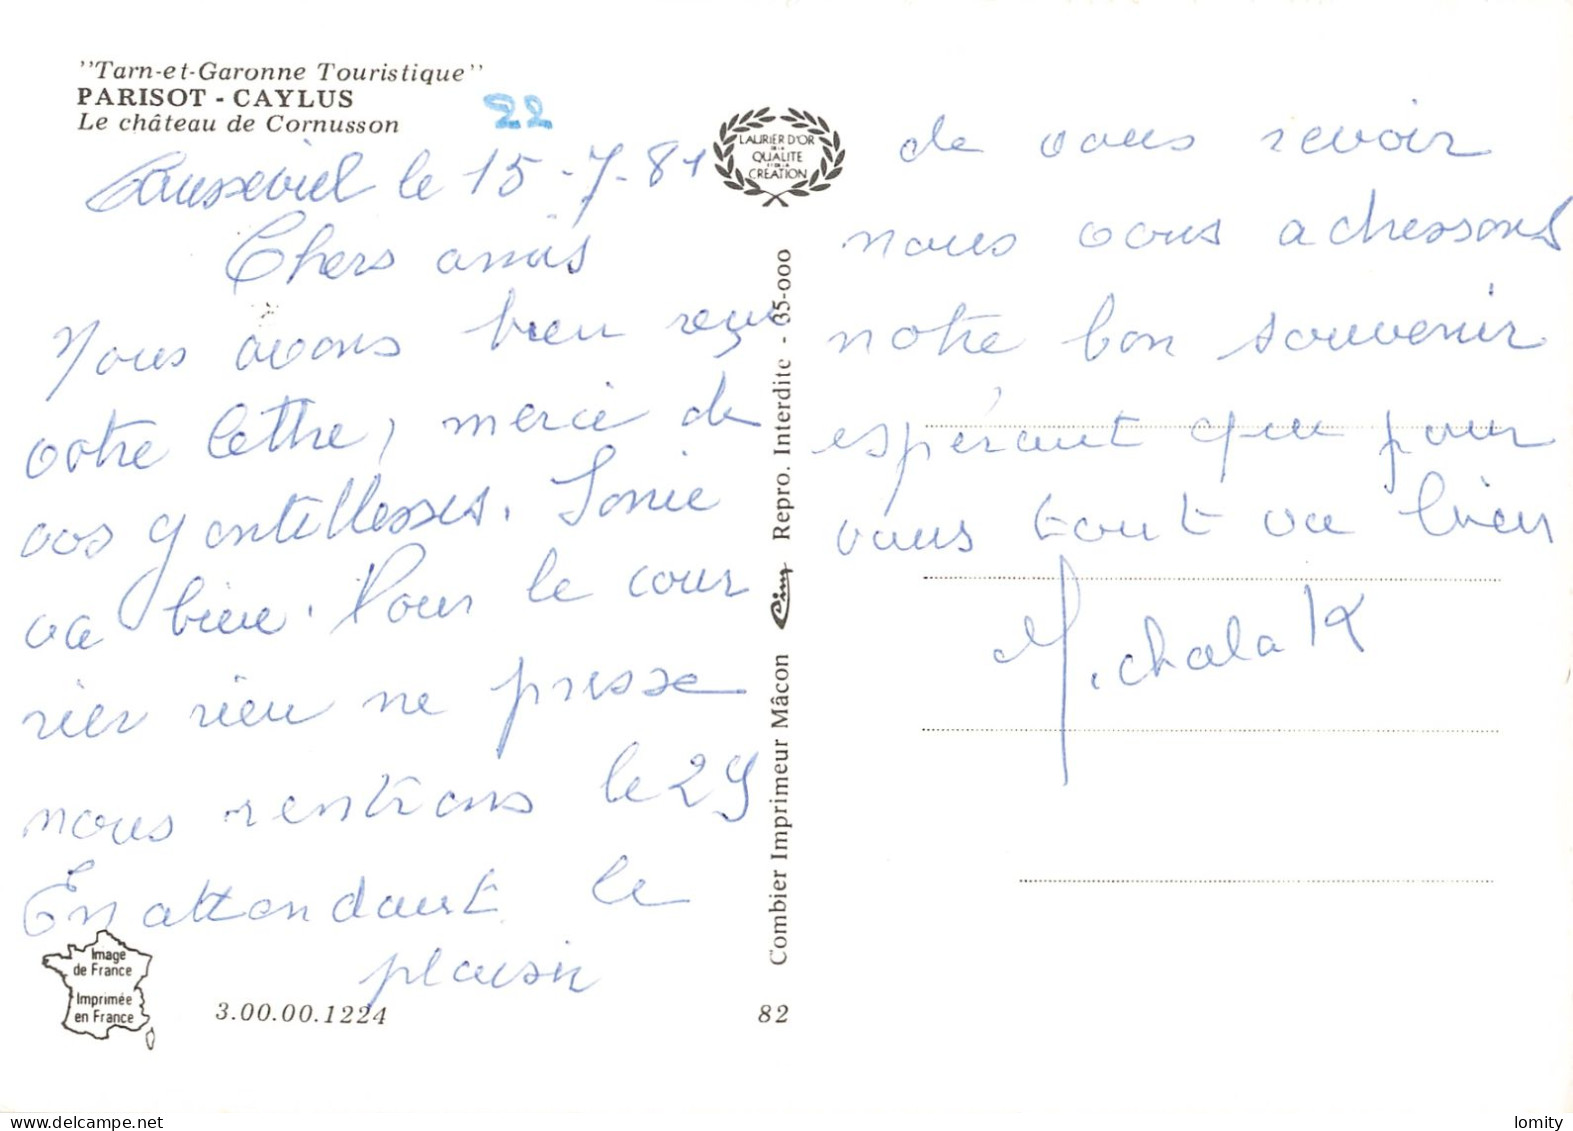 "Tarn-et-Garonne Touristique"
PARISOT - CAYLUS
Le château de Cornusson
22
le 15-7-81
Chers amis
Nous avons bien reçu
votre lettre, merci de
vos gentillesses. Sonie
va bien. Pour le cour
rier rien ne presse
nous rentrons le 29
En attendant le
plaisir
Image
de France
Imprimée
en France
3.00.00.1224
82
LAURIER D'OR
DE LA
QUALITE
ET DE LA
CRÉATION
Combier Imprimeur Mâcon Cim Repro. Interdite - 35-000
de vous revoir
nous vous adressons
notre bon souvenir
espérant que pour
vous tout va bien
Michalak
lomity